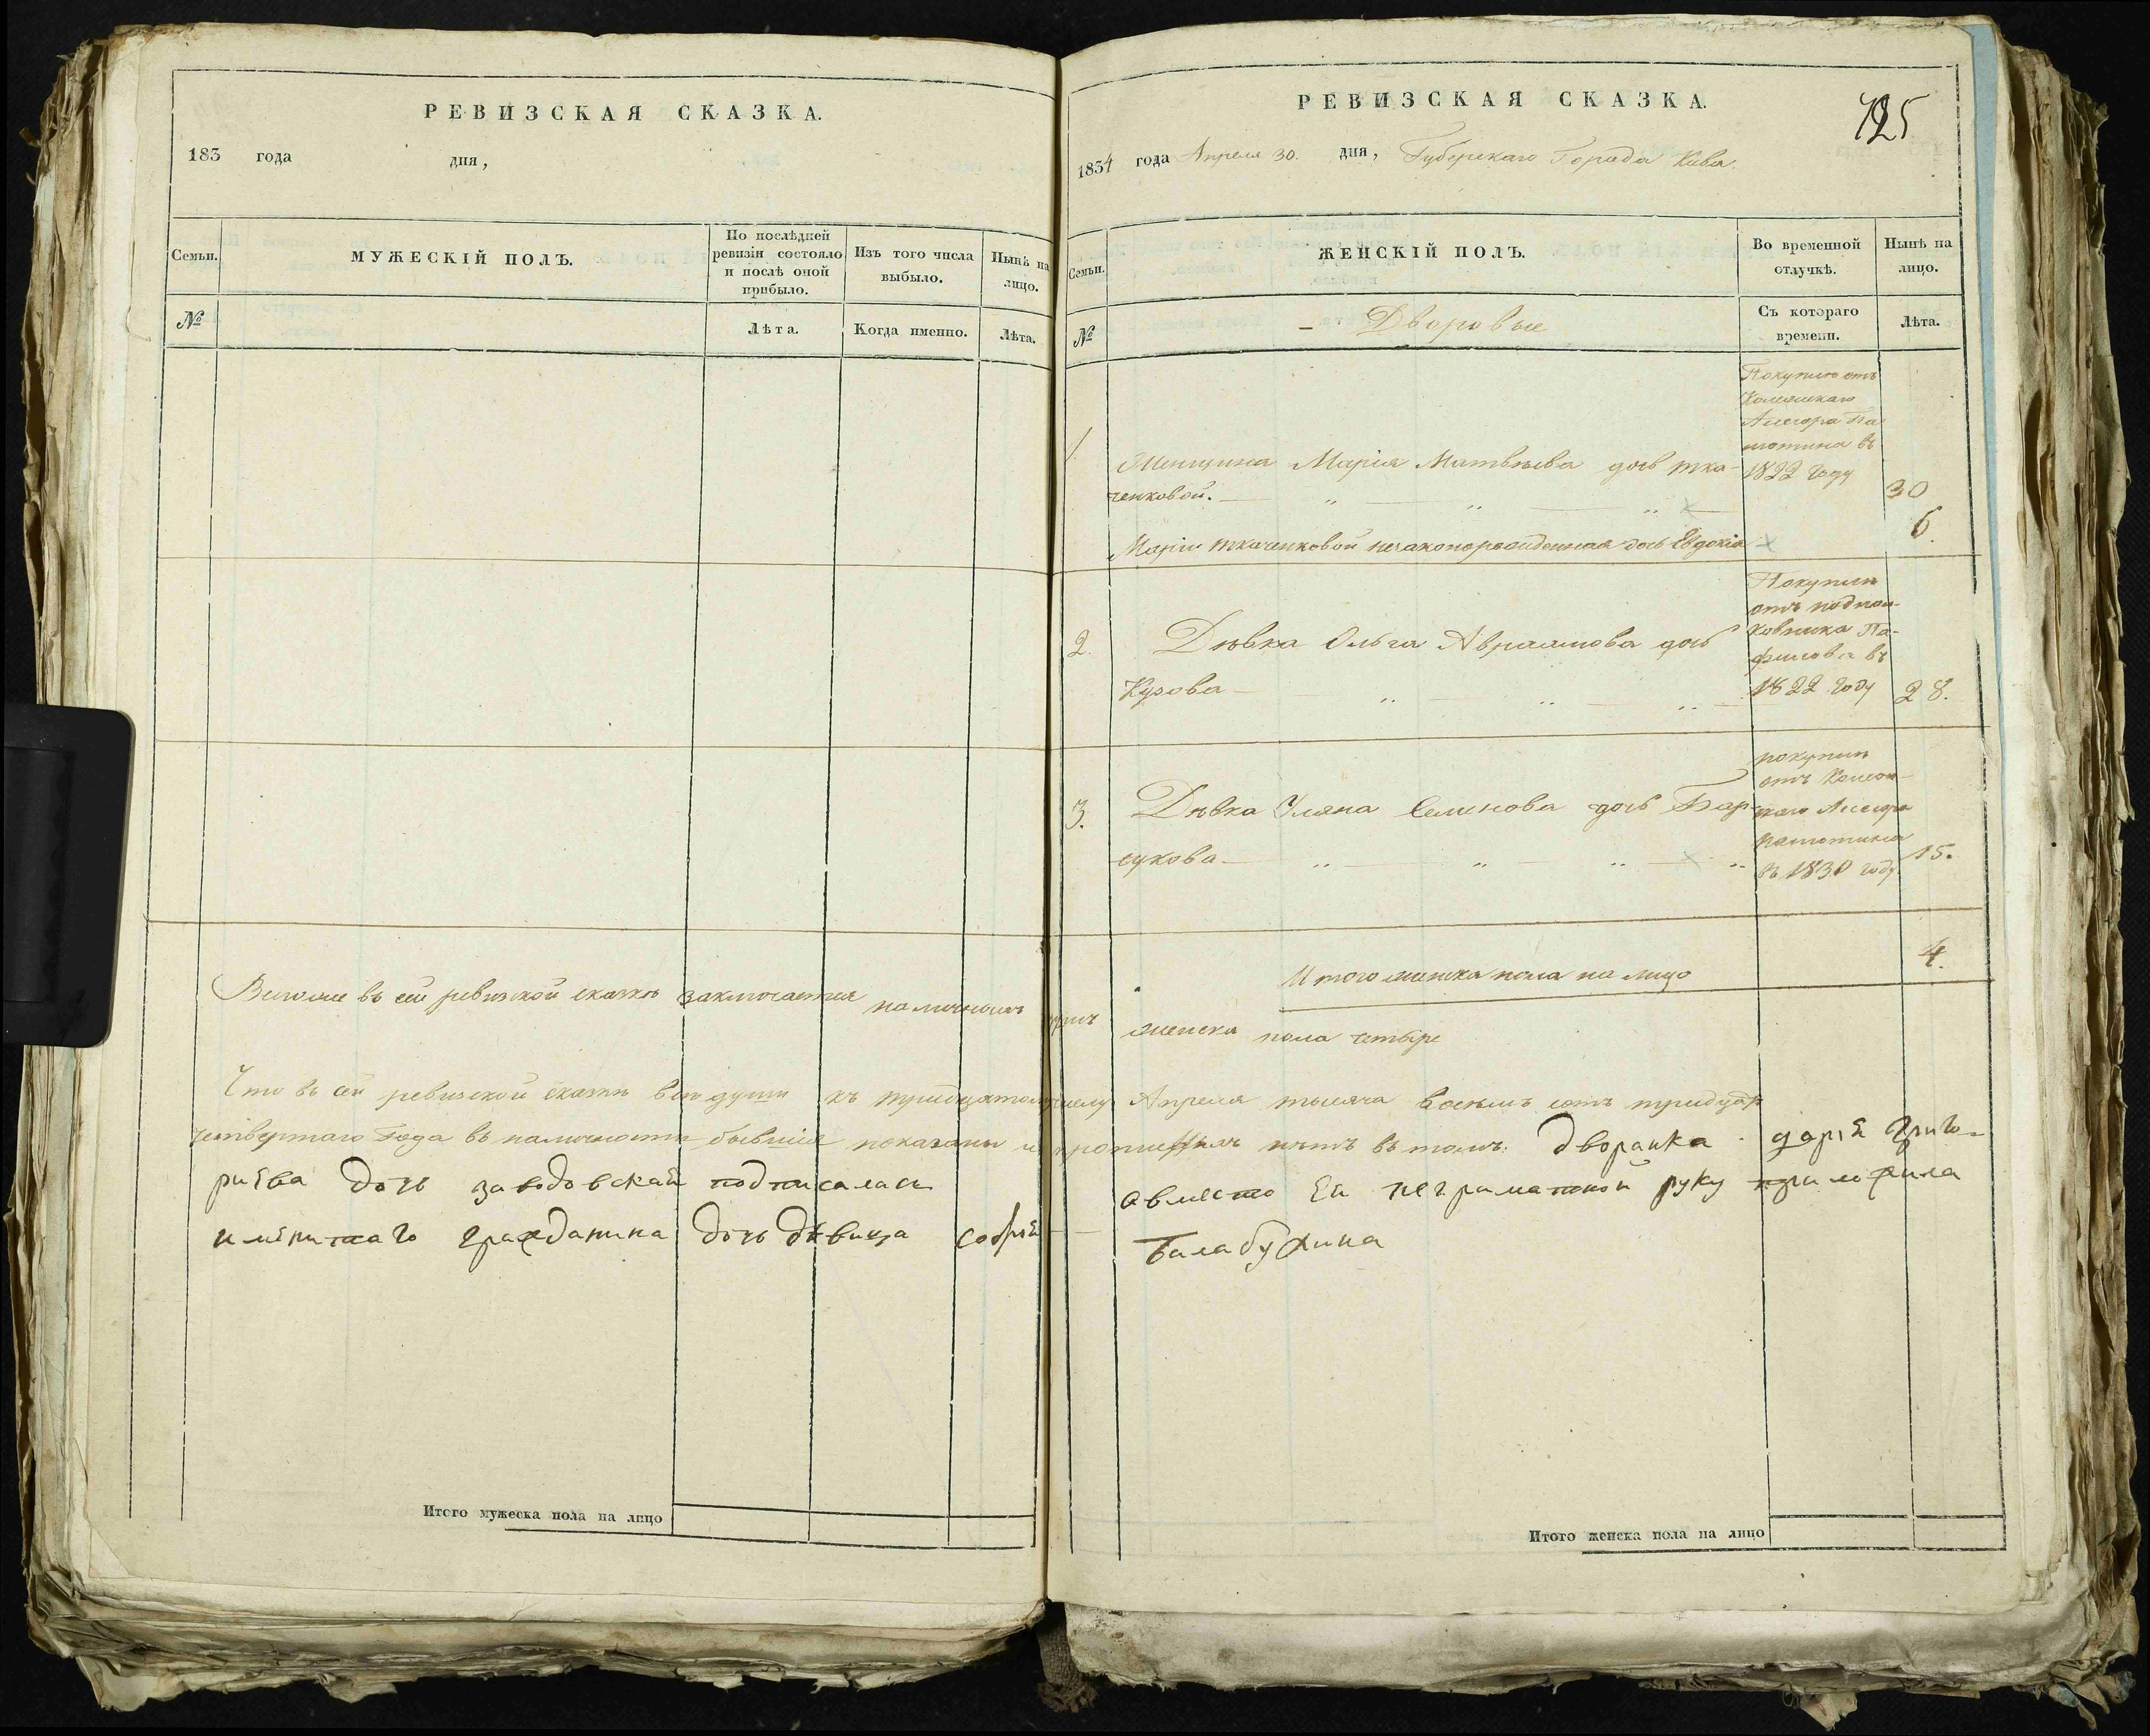 РЕВИЗСКАЯ СКАЗКА.
183 года дня,
Семьи.
МУЖЕСКІЙ ПОЛЪ.
По послѣдней
ревизіи состояло
и послѣ оной
прибыло.
Изъ того числа
выбыло.
Нынѣ на
лицо.
№
Лѣта.
Когда именно.
Лѣта.
РЕВИЗСКАЯ СКАЗКА.
1834 года Апреля 30. дня, Губернскаго Города Кіева.
Семьи.
ЖЕНСКІЙ ПОЛЪ.
Во временной
отлучкѣ.
Нынѣ на
лицо.
№
Дворовые
Съ котораго
времени.
Лѣта.
Покупкою отъ
въ
1822 году
1. Женщина Марія Матвѣева дочь тка-
ченковой. 30
Маріи ткаченковой незаконорожденная дочь Евдокія 6.
отъ подпол-
ковника
въ
1822 году
2. Дѣвка Ольга Авраамова дочь
Кузова 28.
отъ
въ 1830 году
3. Дѣвка Уляна Семенова дочь Бар-
сукова 15.
Итого женска пола на лицо 4.
Всего же въ сей ревизской сказкѣ заключается наличныхъ душъ женска пола четыре
Что въ сей ревизской сказкѣ всѣ души къ тридцатому числу Апреля тысяча восемъ сотъ тридцать
четвертаго Года въ наличности бывшія показаны и прописныхъ нѣтъ въ томъ. дворанка дарія Григо-
риева дочь заводовская подписалась авместо Еи неграматной руку приложила
имѣнитаго гражданина дочь дѣвица софія Балабухина
Итого мужеска пола на лицо
Итого женска пола на лицо